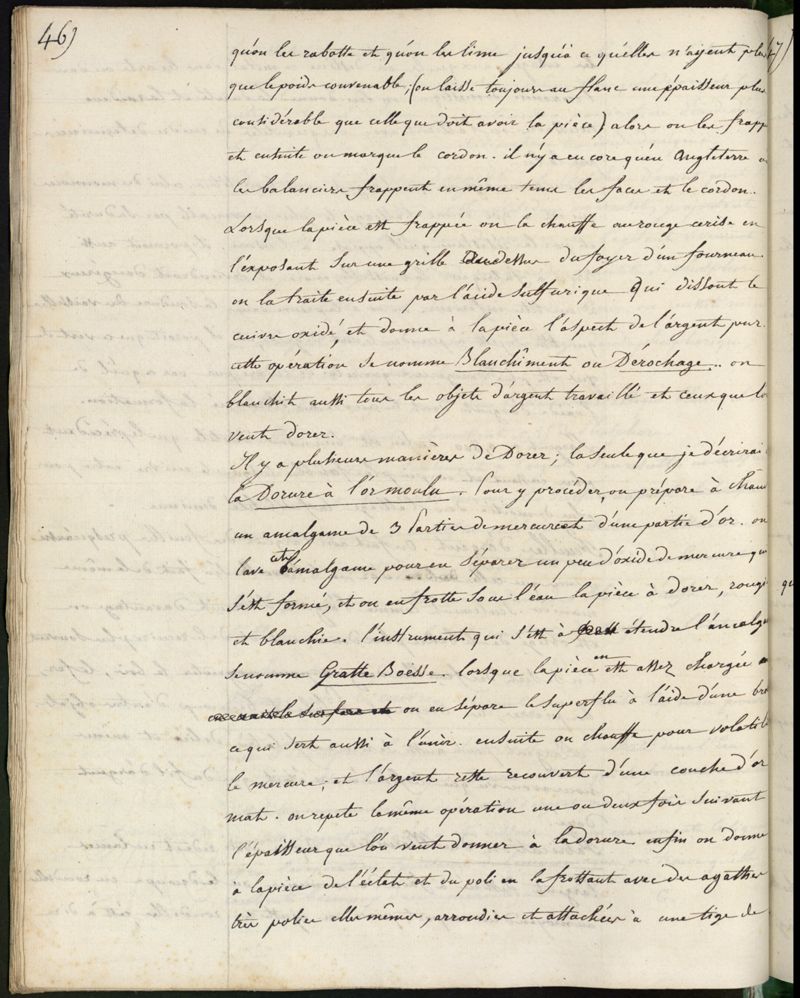 46)
qu'on les rabotte et qu'on les lime jusqu'à ce qu'elles n'aÿent plus
que le poids convenable; (on laisse toujours au flanc une épaisseur plus
considérable que celle que doit avoir la pièce) alors on les frapp
et ensuite on marque le cordon. il n'y a encore qu'en Angleterre
les balanciers frappent en même tems les faces et le cordon.
Lorsque la pièce est frappée on la chauffe au rouge cerise en
l'exposant sur une grille Audessus du foyer d'un fourneau.
on la traite ensuite par l'acide sulfurique qui dissout le
cuivre oxidé, et donne à la pièce l'aspect de l'argent pur.
cette opération se nomme Blanchîment ou Dérochage.. on
blanchit aussi tous les objets d'argent travaillé et ceux que l'o
veut dorer.
Il y a plusieurs manières de Dorer; la seule que je décrirai
la Dorure à l'or moulu. Pour y procéder, on prépare à chau
un amalgame de 3 Parties de mercure et d'une partie d'or. on
lave cet amalgame pour en séparer un peu d'oxide de mercure qu
s'est formé, et on en frotte sous l'eau la pièce à dorer, rougi
et blanchie. l'instrument qui sert à étendre l'amalga
se nomme Gratte Boësse. lorsque la pièce en est assez chargée
on en sépare le superflu à l'aide d'une bro
ce qui sert aussi à l'unir. ensuite on chauffe pour volatili
le mercure; et l'argent reste recouvert d'une couche d'or
mat. on repete la même opération une ou deux fois suivant
l'épaisseur que l'on veut donner à la dorure enfin on donne
à la pièce de l'éclat et du poli en la frottant avec des agathes
très polies elles mêmes, arrondies et attachées à une tige de
47)
qu